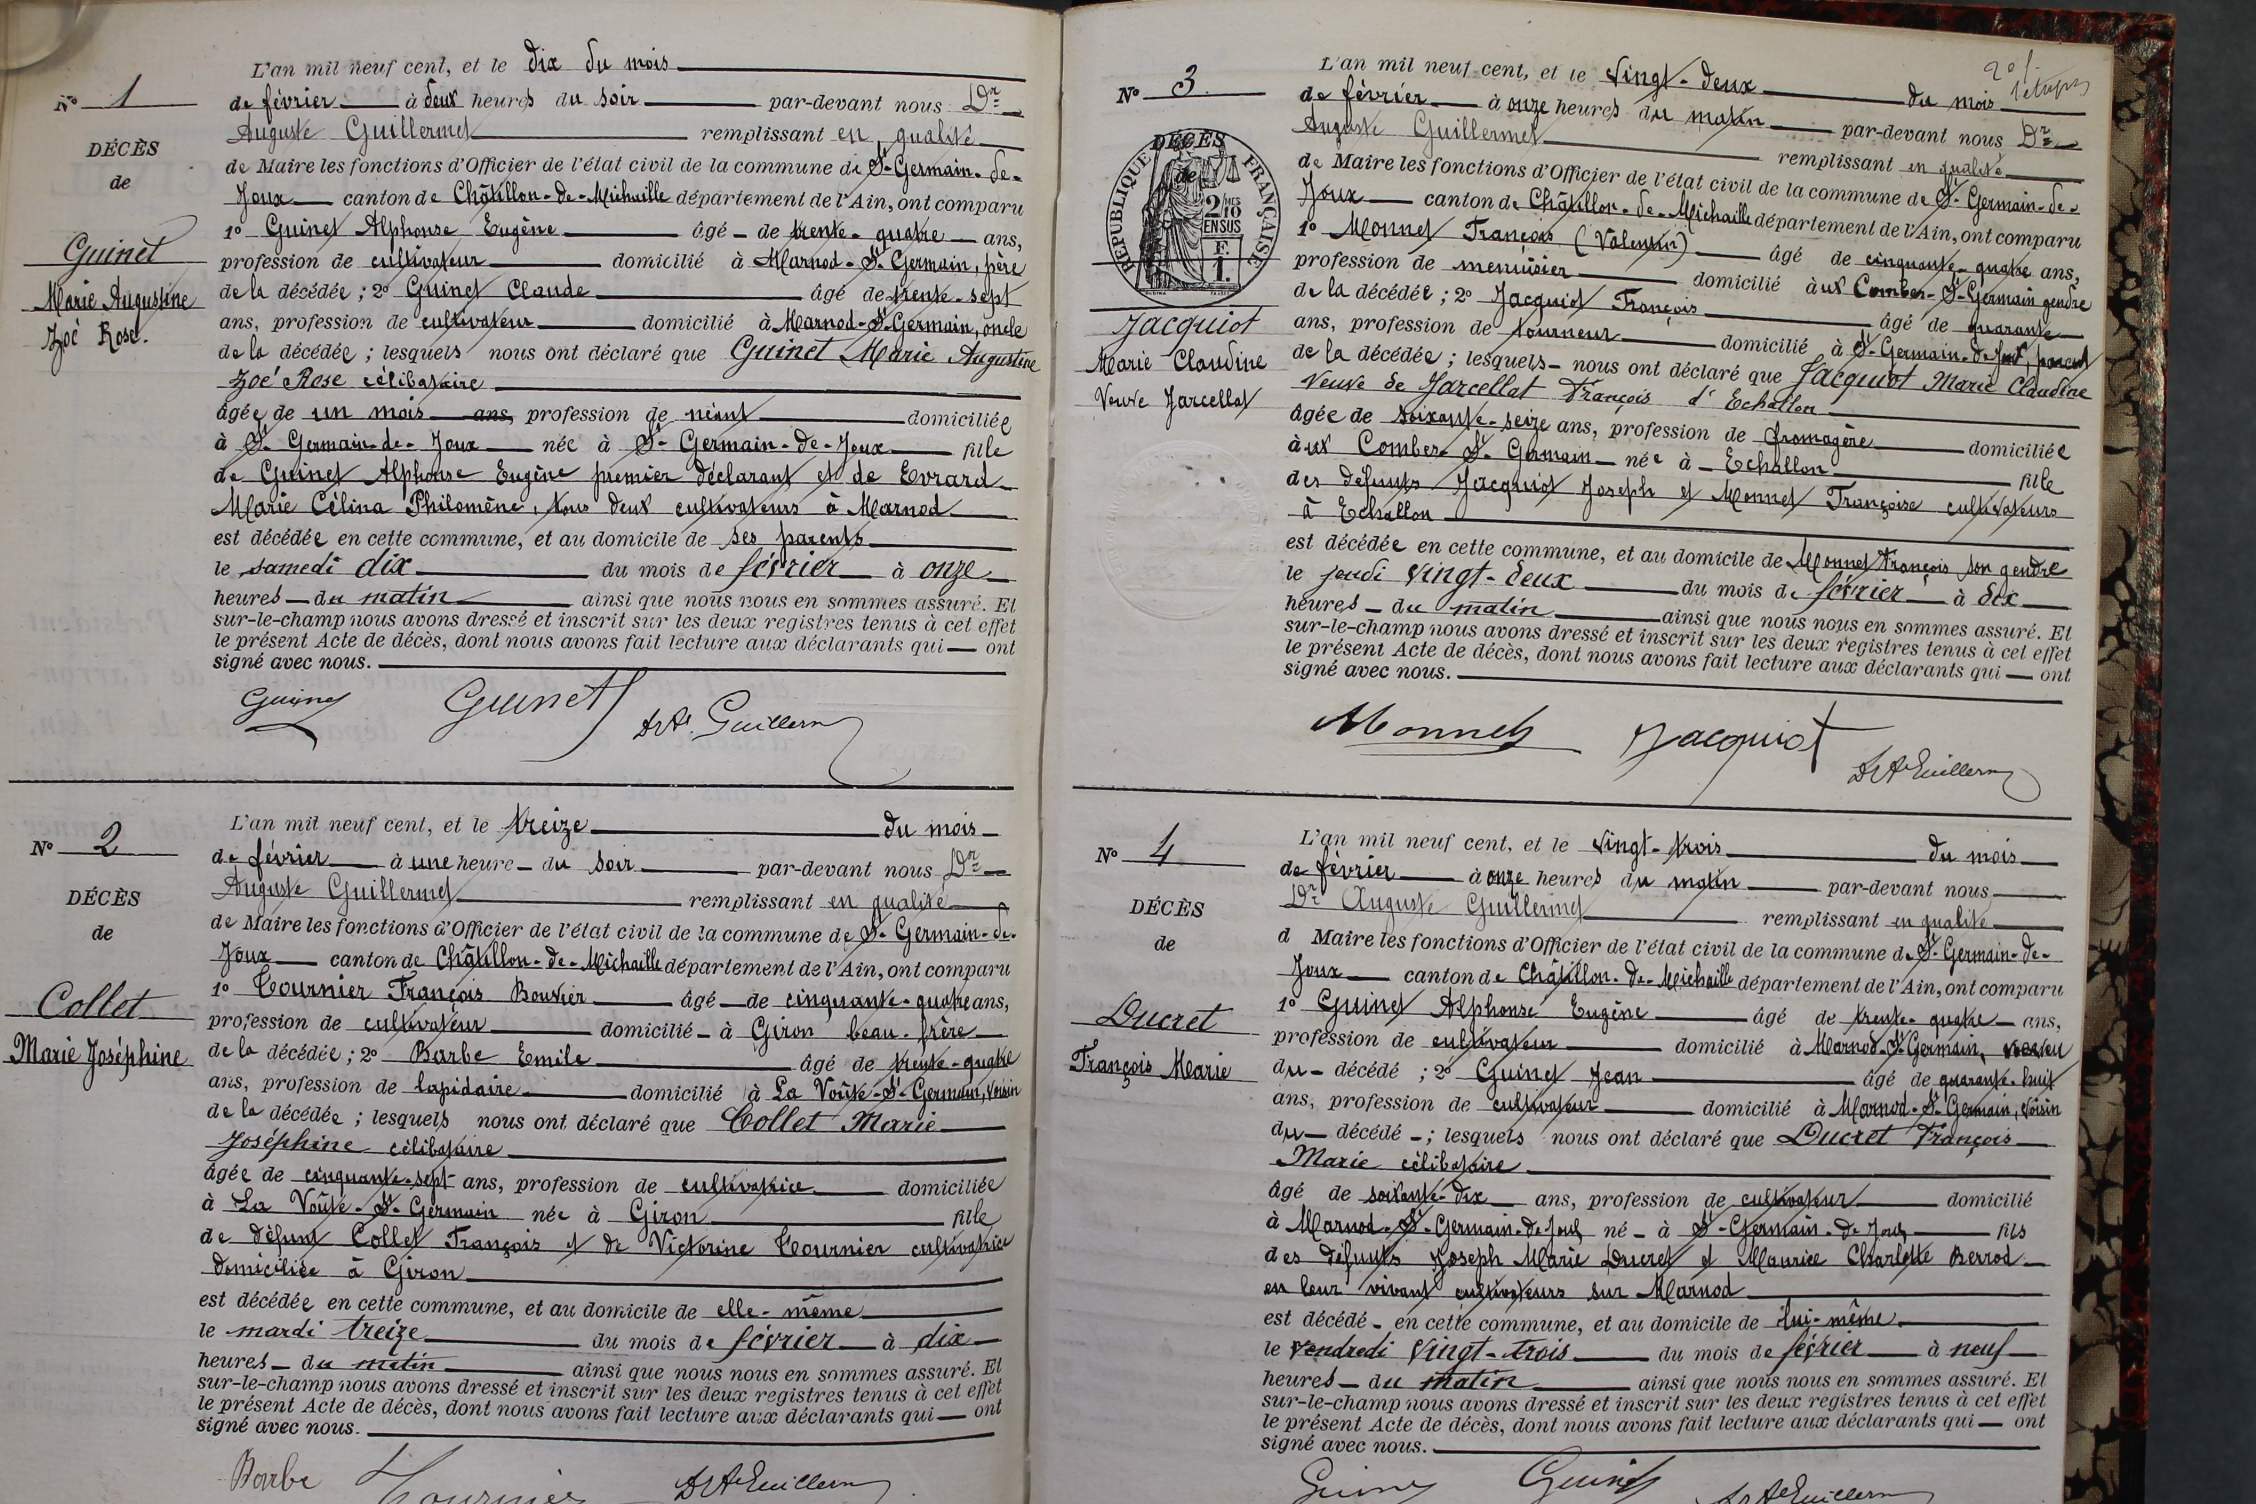 N° 1
DÉCÈS
de
Guinet
Marie Augustine
Zoé Rose.
L'an mil neuf cent, et le dix du mois
de février à deux heures du soir par-devant nous Dr
Auguste Guillermet remplissant en qualité
de Maire les fonctions d'Officier de l'état civil de la commune de St-Germain-de-
Joux canton de Châtillon-de-Michaille département de l'Ain, ont comparu
1° Guinet Alphonse Eugène âgé de trente-quatre ans,
profession de cultivateur domicilié à Marnod-St-Germain, père
de la décédée ; 2° Guinet Claude âgé de trente-sept
ans, profession de cultivateur domicilié à Marnod-St-Germain, oncle
de la décédée ; lesquels nous ont déclaré que Guinet Marie Augustine
Zoé Rose célibataire
âgée de un mois ans, profession de néant domiciliée
à St-Germain-de-Joux née à St-Germain-de-Joux fille
de Guinet Alphonse Eugène premier déclarant et de Evrard
Marie Célina Philomène, tous deux cultivateurs à Marnod
est décédée en cette commune, et au domicile de ses parents
le samedi dix du mois de février à onze
heures du matin ainsi que nous nous en sommes assuré. Et
sur-le-champ nous avons dressé et inscrit sur les deux registres tenus à cet effet
le présent Acte de décès, dont nous avons fait lecture aux déclarants qui ont
signé avec nous.
Guinet Guinet Dr Ate Guillermet
N° 2
DÉCÈS
de
Collet
Marie Joséphine
L'an mil neuf cent, et le treize du mois
de février à une heure du soir par-devant nous Dr
Auguste Guillermet remplissant en qualité
de Maire les fonctions d'Officier de l'état civil de la commune de St-Germain-de-
Joux canton de Châtillon-de-Michaille département de l'Ain, ont comparu
1° Tournier François Bouvier âgé de cinquante-quatre ans,
profession de cultivateur domicilié à Giron beau-frère
de la décédée ; 2° Barbe Emile âgé de trente-quatre
ans, profession de lapidaire domicilié à La Voûte-St-Germain, voisin
de la décédée ; lesquels nous ont déclaré que Collet Marie
Joséphine célibataire
âgée de cinquante-sept ans, profession de cultivatrice domiciliée
à La Voûte-St-Germain née à Giron fille
de défunt Collet François et de Victorine Tournier cultivatrice
domiciliée à Giron
est décédée en cette commune, et au domicile de elle-même
le mardi treize du mois de février à dix
heures du matin ainsi que nous nous en sommes assuré. Et
sur-le-champ nous avons dressé et inscrit sur les deux registres tenus à cet effet
le présent Acte de décès, dont nous avons fait lecture aux déclarants qui ont
signé avec nous.
Barbe Tournier Dr Ate Guillermet
N° 3
DÉCÈS
de
RÉPUBLIQUE FRANÇAISE
2/10 MES
EN SUS
1F.
Jacquiot
Marie Claudine
Veuve Jarcellat
L'an mil neuf cent, et le vingt-deux du mois
de février à onze heures du matin par-devant nous Dr
Auguste Guillermet remplissant en qualité
de Maire les fonctions d'Officier de l'état civil de la commune de St-Germain-de-
Joux canton de Châtillon-de-Michaille département de l'Ain, ont comparu
1° Monnet François (Valentin) âgé de cinquante-quatre ans,
profession de menuisier domicilié aux Combes-St-Germain gendre
de la décédée ; 2° Jacquiot François âgé de quarante
ans, profession de tourneur domicilié à St-Germain-de-Joux, parent
de la décédée ; lesquels nous ont déclaré que Jacquiot Marie Claudine
Veuve de Jarcellat François d'Echallon
âgée de soixante-seize ans, profession de fromagère domiciliée
aux Combes St-Germain née à Echallon fille
des défunts Jacquiot Joseph et Monnet Françoise cultivateurs
à Echallon
est décédée en cette commune, et au domicile de Monnet François son gendre
le jeudi vingt-deux du mois de février à dix
heures du matin ainsi que nous nous en sommes assuré. Et
sur-le-champ nous avons dressé et inscrit sur les deux registres tenus à cet effet
le présent Acte de décès, dont nous avons fait lecture aux déclarants qui ont
signé avec nous.
Monnet Jacquiot Dr Ate Guillermet
N° 4
DÉCÈS
de
Ducret
François Marie
L'an mil neuf cent, et le vingt-trois du mois
de février à onze heures du matin par-devant nous
Dr Auguste Guillermet remplissant en qualité
d Maire les fonctions d'Officier de l'état civil de la commune de St-Germain-de-
Joux canton de Châtillon-de-Michaille département de l'Ain, ont comparu
1° Guinet Alphonse Eugène âgé de trente-quatre ans,
profession de cultivateur domicilié à Marnod-St-Germain, neveu
du décédé ; 2° Guinet Jean âgé de quarante-huit
ans, profession de cultivateur domicilié à Marnod-St-Germain, voisin
du décédé ; lesquels nous ont déclaré que Ducret François
Marie célibataire
âgé de soixante-dix ans, profession de cultivateur domicilié
à Marnod-St-Germain-de-Joux né à St-Germain-de-Joux fils
des défunts Joseph Marie Ducret et Maurice Charlotte Berrod
en leur vivant cultivateurs sur Marnod
est décédé en cette commune, et au domicile de lui-même
le vendredi vingt-trois du mois de février à neuf
heures du matin ainsi que nous nous en sommes assuré. Et
sur-le-champ nous avons dressé et inscrit sur les deux registres tenus à cet effet
le présent Acte de décès, dont nous avons fait lecture aux déclarants qui ont
signé avec nous.
Guinet Guinet Dr Ate Guillermet